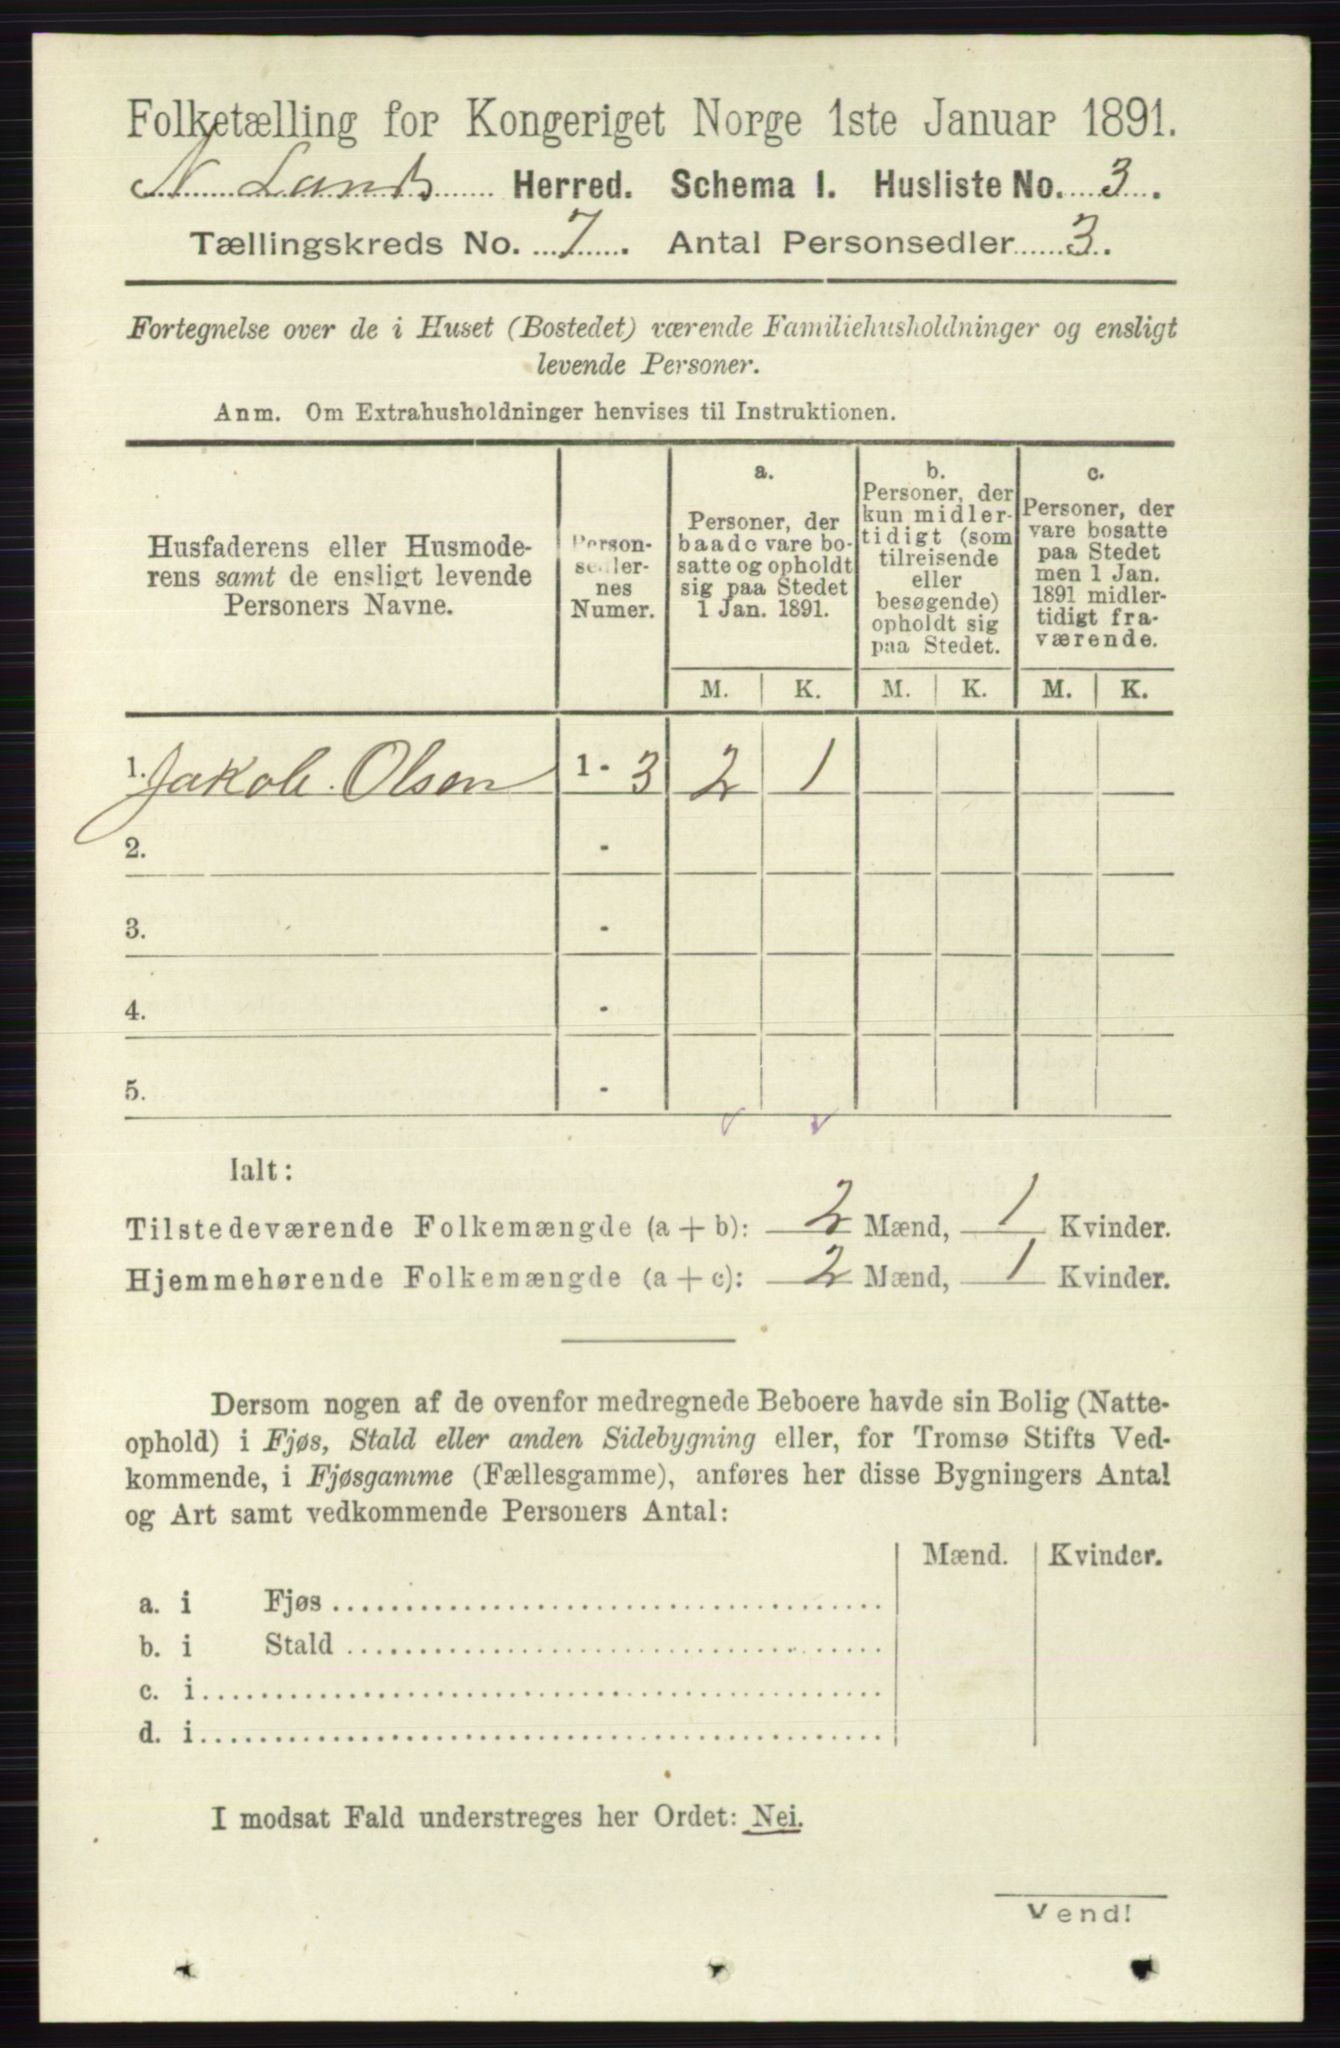 Folketælling for Kongeriget Norge 1ste Januar 1891.
N. Land Herred. Schema I. Husliste No. 3.
Tællingskreds No. 7. Antal Personsedler 3.
Fortegnelse over de i Huset (Bostedet) værende Familiehusholdninger og ensligt
levende Personer.
Anm. Om Extrahusholdninger henvises til Instruktionen.
Husfaderens eller Husmode-
rens samt de ensligt levende
Personers Navne.
Person-
sedler-
nes
Numer.
a.
Personer, der
baade vare bo-
satte og opholdt
sig paa Stedet
1 Jan. 1891.
b.
Personer, der
kun midler-
tidigt (som
tilreisende
eller
besøgende)
opholdt sig
paa Stedet.
c.
Personer, der
vare bosatte
paa Stedet
men 1 Jan.
1891 midler-
tidigt fra-
værende.
M. K. M. K. M. K.
1. Jakob Olsen 1 - 3 2 1
2. -
3. -
4. -
5. -
Ialt:
Tilstedeværende Folkemængde (a + b): 2 Mænd, 1 Kvinder.
Hjemmehørende Folkemængde (a + c): 2 Mænd, 1 Kvinder.
Dersom nogen af de ovenfor medregnede Beboere havde sin Bolig (Natte-
ophold) i Fjøs, Stald eller anden Sidebygning eller, for Tromsø Stifts Ved-
kommende, i Fjøsgamme (Fællesgamme), anføres her disse Bygningers Antal
og Art samt vedkommende Personers Antal:
Mænd. Kvinder.
a. i Fjøs
b. i Stald
c. i
d. i
I modsat Fald understreges her Ordet: Nei.
Vend!